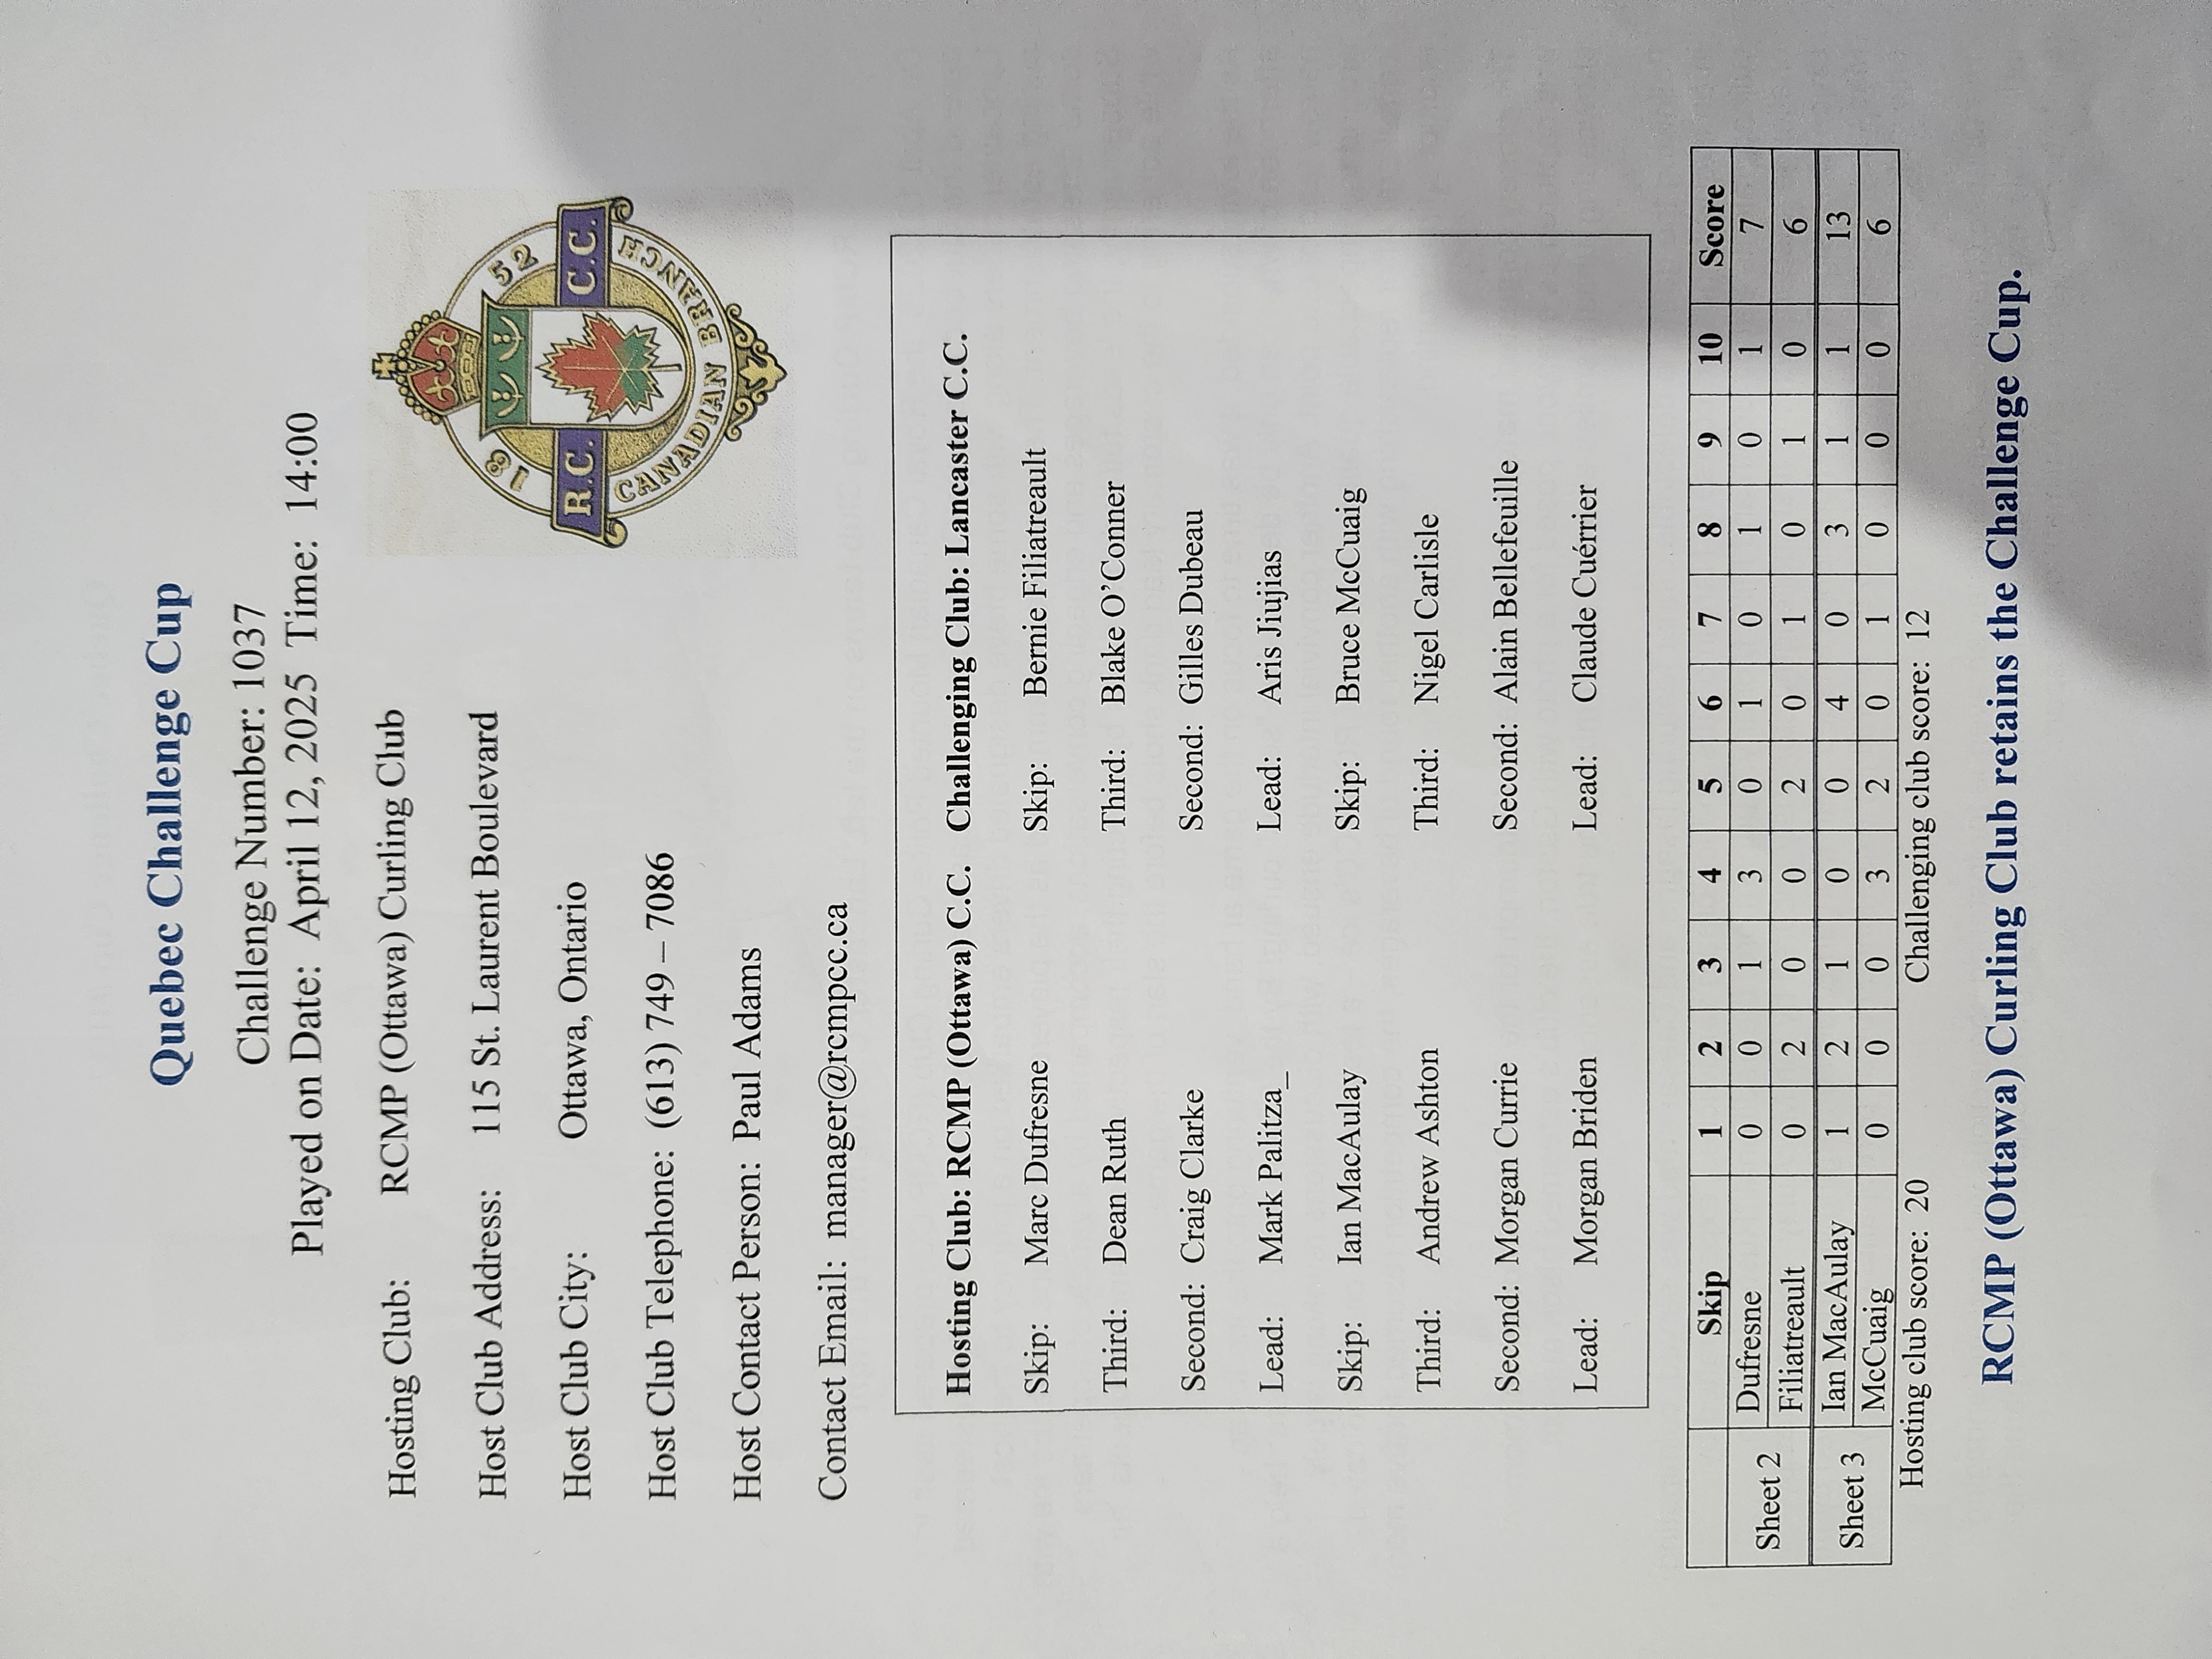 Quebec Challenge Cup
Challenge Number: 1037
Played on Date: April 12, 2025 Time: 14:00
Hosting Club: RCMP (Ottawa) Curling Club
Host Club Address: 115 St. Laurent Boulevard
Host Club City: Ottawa, Ontario
Host Club Telephone: (613) 749 – 7086
Host Contact Person: Paul Adams
Contact Email: manager@rcmpcc.ca
18 52
R.C. C.C.
CANADIAN BRANCH
Hosting Club: RCMP (Ottawa) C.C. Challenging Club: Lancaster C.C.
Skip: Marc Dufresne Skip: Bernie Filiatreault
Third: Dean Ruth Third: Blake O’Conner
Second: Craig Clarke Second: Gilles Dubeau
Lead: Mark Palitza_ Lead: Aris Jiujias
Skip: Ian MacAulay Skip: Bruce McCuaig
Third: Andrew Ashton Third: Nigel Carlisle
Second: Morgan Currie Second: Alain Bellefeuille
Lead: Morgan Briden Lead: Claude Cuérrier
Skip 1 2 3 4 5 6 7 8 9 10 Score
Sheet 2 Dufresne 0 0 1 3 0 1 0 1 0 1 7
Filiatreault 0 2 0 0 2 0 1 0 1 0 6
Sheet 3 Ian MacAulay 1 2 1 0 0 4 0 3 1 1 13
McCuaig 0 0 0 3 2 0 1 0 0 0 6
Hosting club score: 20 Challenging club score: 12
RCMP (Ottawa) Curling Club retains the Challenge Cup.